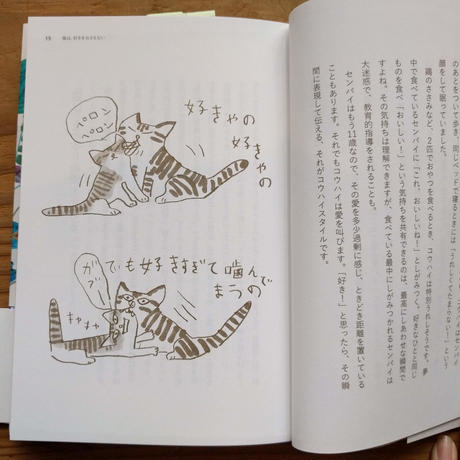 15
猫は、好きをおさえない
ペロン
ペロン
好きやの
好きやの
でも好きすぎて噛んで
まうの
ガブ
キャメ
のあとをついて歩き、同じベッドで寝るときには「うれしくてたまらない!」という
顔をして眠っていました。
鶏のささみなど、2匹でおやつを食べるとき、コウハイは特別うれしそうです。夢
中で食べているセンパイに「これ、おいしいね!」としがみつく。好きなひとと同じ
ものを食べ「おいしい!」という気持ちを共有できるのは、最高にしあわせな瞬間で
すよね。その気持ちは理解できますが、食べている最中にしがみつかれるセンパイは
大迷惑で、教育的指導をされることも。
センパイはもう11歳なので、その愛を多少過剰に感じ、ときどき距離を置いている
こともあります。それでもコウハイは愛を叫びます。「好き!」と思ったら、その瞬
間に表現して伝える、それがコウハイスタイルです。